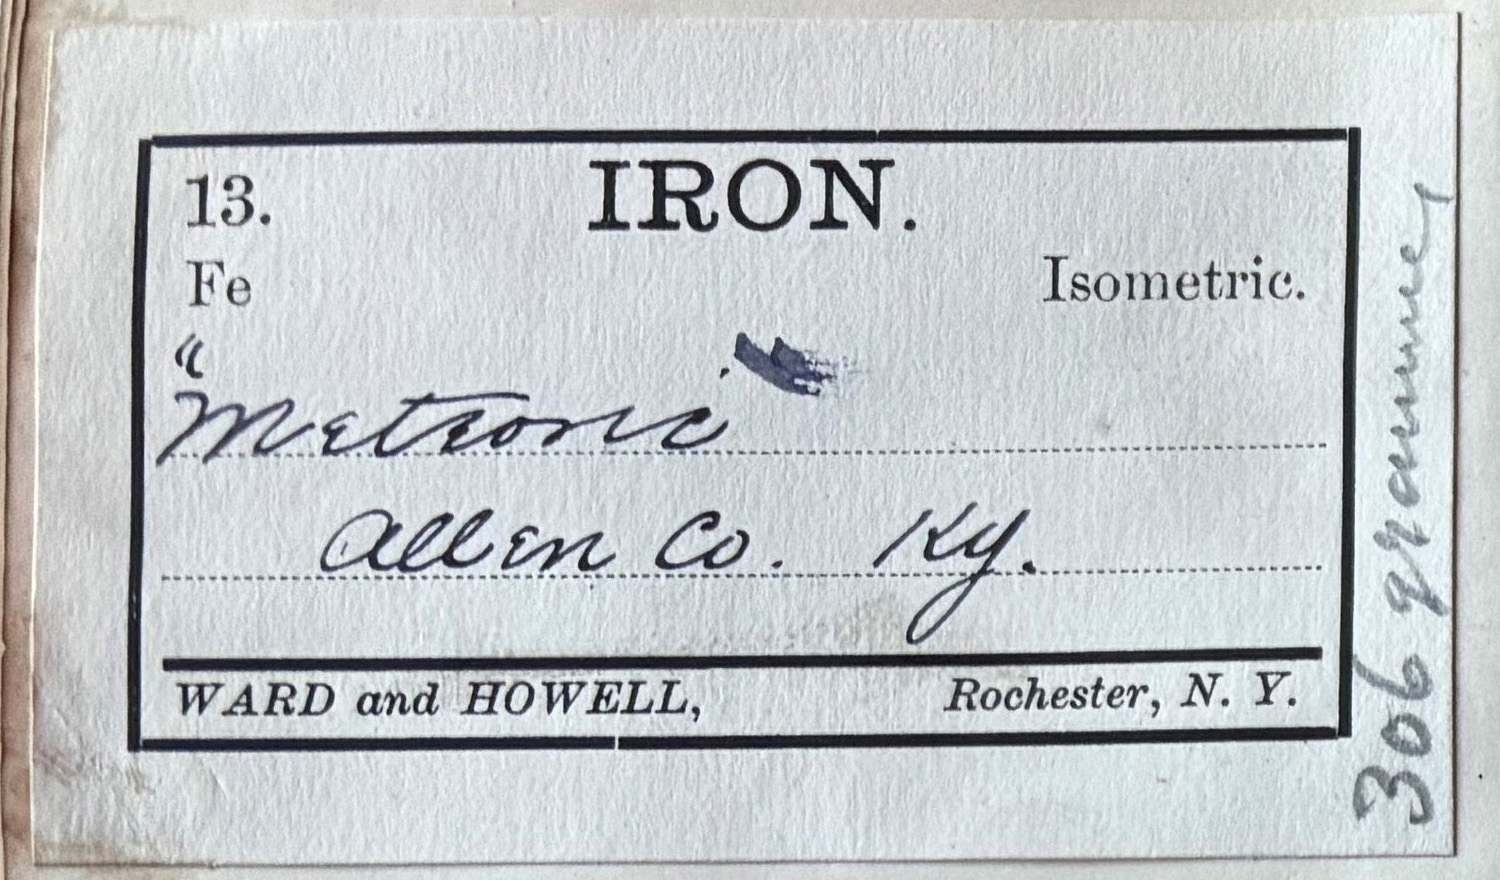 13.
IRON.
Fe
Isometric.
"
Meteoric
Allen Co. Ky.
WARD and HOWELL,
Rochester, N. Y.
306 gramme